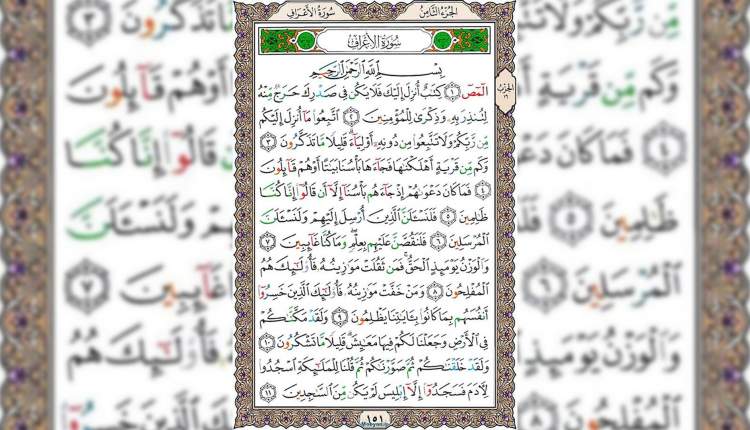 سُورَةُ الأَعۡرَافِ الجُزءُ الثَّامِنُ
سُورَةُ الأَعۡرَافِ
بِسۡمِ ٱللَّهِ ٱلرَّحۡمَٰنِ ٱلرَّحِيمِ
الٓمٓصٓ ١ كِتَٰبٌ أُنزِلَ إِلَيۡكَ فَلَا يَكُن فِي صَدۡرِكَ حَرَجٞ مِّنۡهُ
لِتُنذِرَ بِهِۦ وَذِكۡرَىٰ لِلۡمُؤۡمِنِينَ ٢ ٱتَّبِعُواْ مَآ أُنزِلَ إِلَيۡكُم
مِّن رَّبِّكُمۡ وَلَا تَتَّبِعُواْ مِن دُونِهِۦٓ أَوۡلِيَآءَۗ قَلِيلٗا مَّا تَذَكَّرُونَ ٣
وَكَم مِّن قَرۡيَةٍ أَهۡلَكۡنَٰهَا فَجَآءَهَا بَأۡسُنَا بَيَٰتًا أَوۡ هُمۡ قَآئِلُونَ
٤ فَمَا كَانَ دَعۡوَىٰهُمۡ إِذۡ جَآءَهُم بَأۡسُنَآ إِلَّآ أَن قَالُوٓاْ إِنَّا كُنَّا
ظَٰلِمِينَ ٥ فَلَنَسۡـَٔلَنَّ ٱلَّذِينَ أُرۡسِلَ إِلَيۡهِمۡ وَلَنَسۡـَٔلَنَّ
ٱلۡمُرۡسَلِينَ ٦ فَلَنَقُصَّنَّ عَلَيۡهِم بِعِلۡمٖۖ وَمَا كُنَّا غَآئِبِينَ ٧
وَٱلۡوَزۡنُ يَوۡمَئِذٍ ٱلۡحَقُّۚ فَمَن ثَقُلَتۡ مَوَٰزِينُهُۥ فَأُوْلَٰٓئِكَ هُمُ
ٱلۡمُفۡلِحُونَ ٨ وَمَنۡ خَفَّتۡ مَوَٰزِينُهُۥ فَأُوْلَٰٓئِكَ ٱلَّذِينَ خَسِرُوٓاْ
أَنفُسَهُم بِمَا كَانُواْ بِـَٔايَٰتِنَا يَظۡلِمُونَ ٩ وَلَقَدۡ مَكَّنَّٰكُمۡ
فِي ٱلۡأَرۡضِ وَجَعَلۡنَا لَكُمۡ فِيهَا مَعَٰيِشَۗ قَلِيلٗا مَّا تَشۡكُرُونَ ١٠
وَلَقَدۡ خَلَقۡنَٰكُمۡ ثُمَّ صَوَّرۡنَٰكُمۡ ثُمَّ قُلۡنَا لِلۡمَلَٰٓئِكَةِ ٱسۡجُدُواْ
لِأٓدَمَ فَسَجَدُوٓاْ إِلَّآ إِبۡلِيسَ لَمۡ يَكُن مِّنَ ٱلسَّٰجِدِينَ ١١
الحِزْبُ
١٦
١٥١